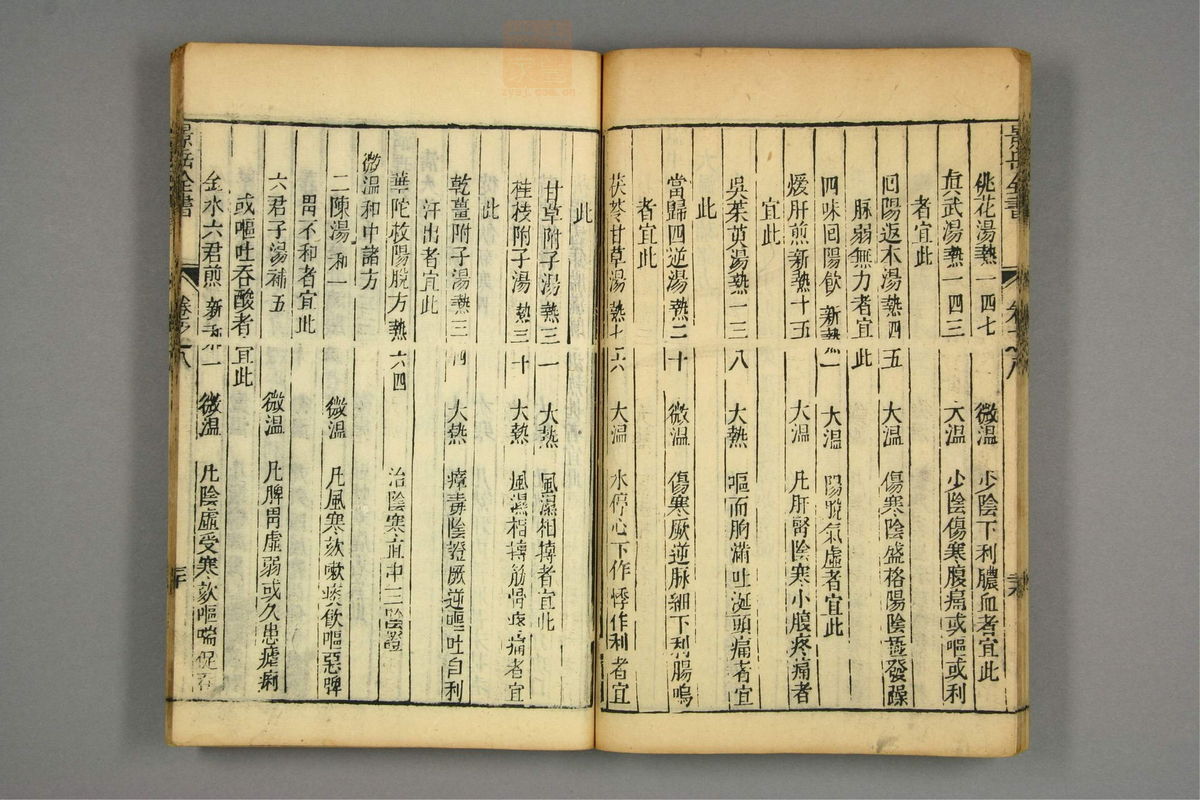 桃花湯熱一四七 微温 少陰下利膿血者宜此
眞武湯熱一四三 大温 少陰傷寒腹痛或嘔或利
者宜此
回陽返本湯熱四五 大温 傷寒陰盛格陽陰極發躁
脉弱無力者宜此
四味回陽飲新熱一 大温 陽脱氣虛者宜此
煖肝煎新熱十五 大温 凡肝腎陰寒小腹疼痛者
宜此
吳茱萸湯熱一三八 大熱 嘔而胸滿吐涎頭痛者宜
此
當歸四逆湯熱二十 微温 傷寒厥逆脉細下利腸鳴
者宜此
茯苓甘草湯熱十六 大温 水停心下作悸作利者宜
此
甘草附子湯熱三一 大熱 風濕相摶者宜此
桂枝附子湯熱三十 大熱 風濕相摶筋骨疼痛者宜
此
乾薑附子湯熱三四 大熱 瘴毒陰證厥逆嘔吐自利
汗出者宜此
華陀救陽脱方熱六四 治陰寒直中三陰證
微温和中諸方
二陳湯和一 微温 凡風寒欬嗽痰飲嘔惡脾
胃不和者宜此
六君子湯補五 微温 凡脾胃虛弱或久患瘧痢
或嘔吐吞酸者宜此
金水六君煎新和一 微温 凡陰虛受寒欬嘔喘促者
景岳全書 卷之八 三十
景岳全書